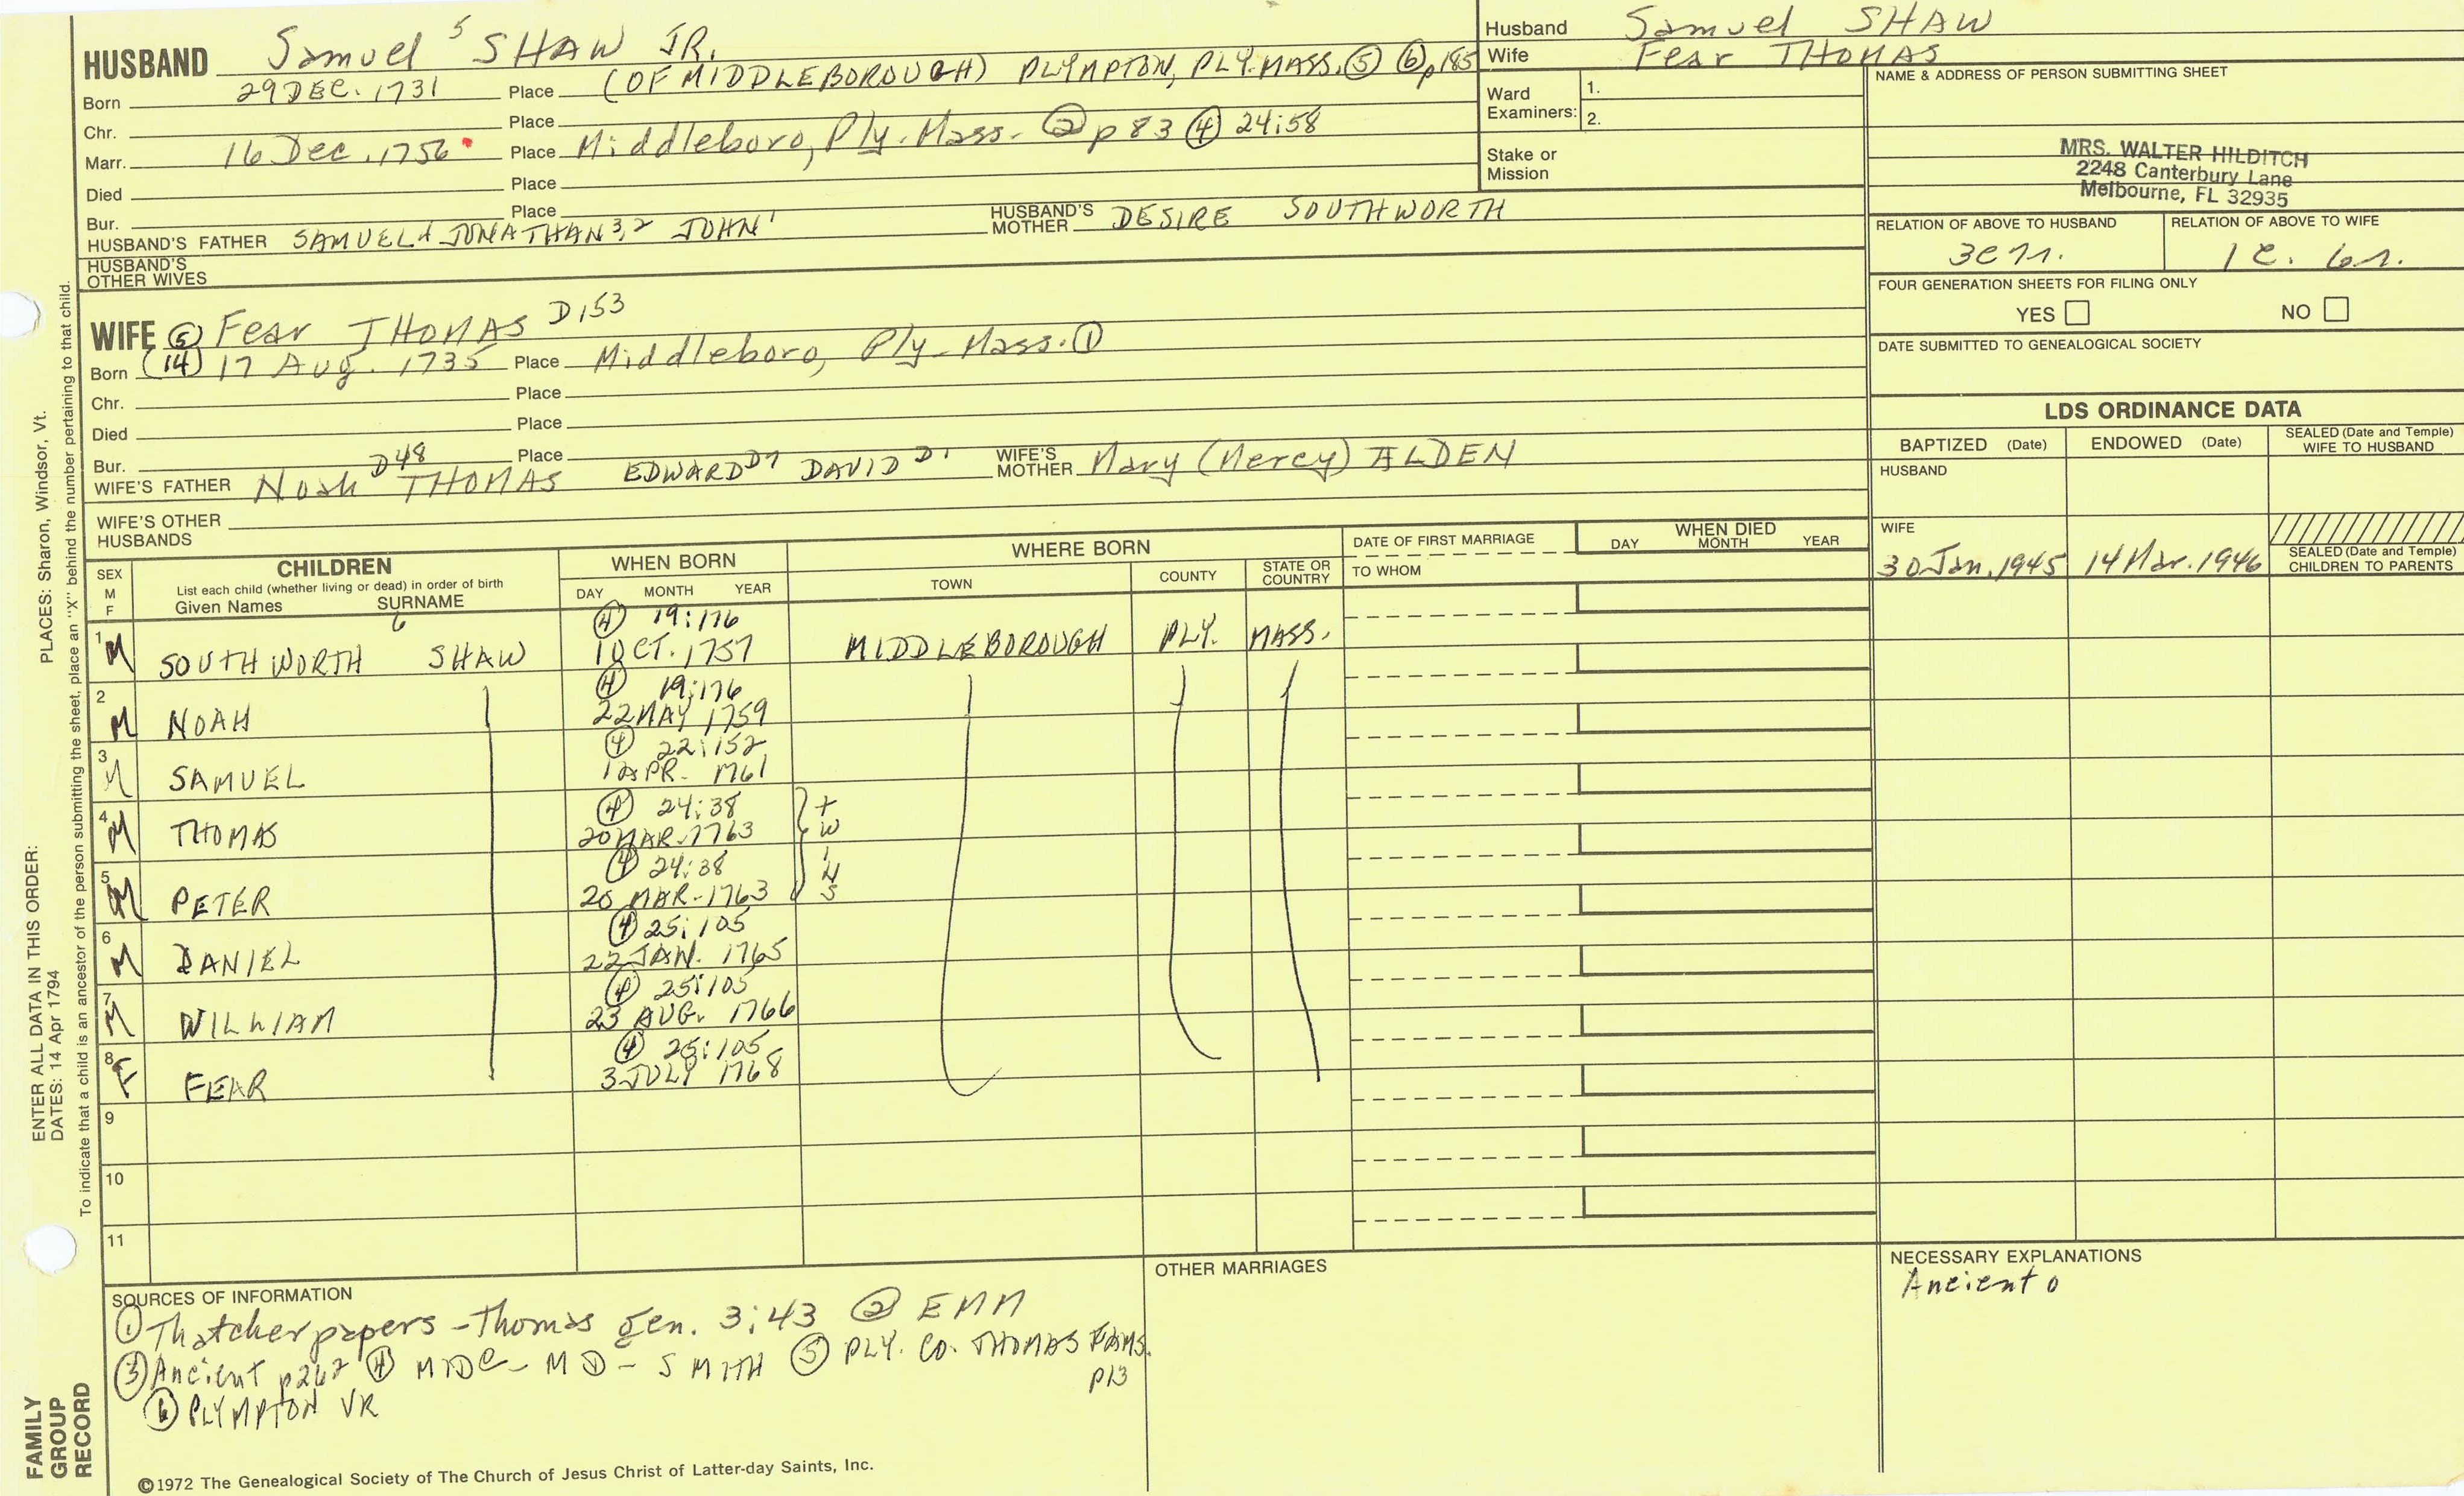 HUSBAND Samuel 5 SHAW JR.
Born 29 DEC. 1731 Place (OF MIDDLEBOROUGH) PLYMPTON, PLY. MASS. ⑤ ⑥ p185
Chr. Place
Marr. 16 Dec. 1756 Place Middleboro, Ply. Mass. ② p 83 ④ 24:58
Died Place
Bur. Place
HUSBAND'S FATHER SAMUEL 4 JONATHAN 3,2 JOHN 1 HUSBAND'S MOTHER DESIRE SOUTHWORTH
HUSBAND'S OTHER WIVES
WIFE ⑤ Fear THOMAS D153
Born (14) 17 Aug. 1735 Place Middleboro, Ply. Mass. ①
Chr. Place
Died Place
Bur. Place
WIFE'S FATHER Noah D48 THOMAS EDWARD D7 DAVID D1 WIFE'S MOTHER Mary (Mercy) ALDEN
WIFE'S OTHER HUSBANDS
Husband Samuel SHAW
Wife Fear THOMAS
Ward Examiners: 1.
2.
Stake or Mission
NAME & ADDRESS OF PERSON SUBMITTING SHEET
MRS. WALTER HILDITCH
2248 Canterbury Lane
Melbourne, FL 32935
RELATION OF ABOVE TO HUSBAND RELATION OF ABOVE TO WIFE
1 c. 6r.
FOUR GENERATION SHEETS FOR FILING ONLY
YES NO
DATE SUBMITTED TO GENEALOGICAL SOCIETY
LDS ORDINANCE DATA
BAPTIZED (Date) ENDOWED (Date) SEALED (Date and Temple) WIFE TO HUSBAND
HUSBAND
WIFE
30 Jan. 1945 14 Mar. 1946
SEALED (Date and Temple) CHILDREN TO PARENTS
SEX M F
CHILDREN
List each child (whether living or dead) in order of birth
Given Names SURNAME
WHEN BORN
DAY MONTH YEAR
WHERE BORN
TOWN COUNTY STATE OR COUNTRY
DATE OF FIRST MARRIAGE
TO WHOM
WHEN DIED
DAY MONTH YEAR
④ 19:176
1 M SOUTHWORTH 6 SHAW 1 OCT. 1757 MIDDLEBOROUGH PLY. MASS.
④ 19:176
2 M NOAH 22 MAY 1759
④ 22:152
3 M SAMUEL 1 APR. 1761
④ 24:38
4 M THOMAS 20 MAR. 1763 TWINS
④ 24:38
5 M PETER 20 MAR. 1763
④ 25:105
6 M DANIEL 22 JAN. 1765
④ 25:105
7 M WILLIAM 23 AUG. 1766
④ 25:105
8 F FEAR 3 JULY 1768
9
10
11
SOURCES OF INFORMATION
① Thatcher papers - Thomas gen. 3:43 ② EMM
③ Ancient p262 ④ MIDC - MD - SMITH ⑤ PLY. CO. THOMAS FAMS. p13
⑥ PLYMPTON VR
OTHER MARRIAGES
NECESSARY EXPLANATIONS
Ancient o
©1972 The Genealogical Society of The Church of Jesus Christ of Latter-day Saints, Inc.
FAMILY GROUP RECORD
ENTER ALL DATA IN THIS ORDER:
DATES: 14 Apr 1794
PLACES: Sharon, Windsor, Vt.
To indicate that a child is an ancestor of the person submitting the sheet, place an "X" behind the number pertaining to that child.